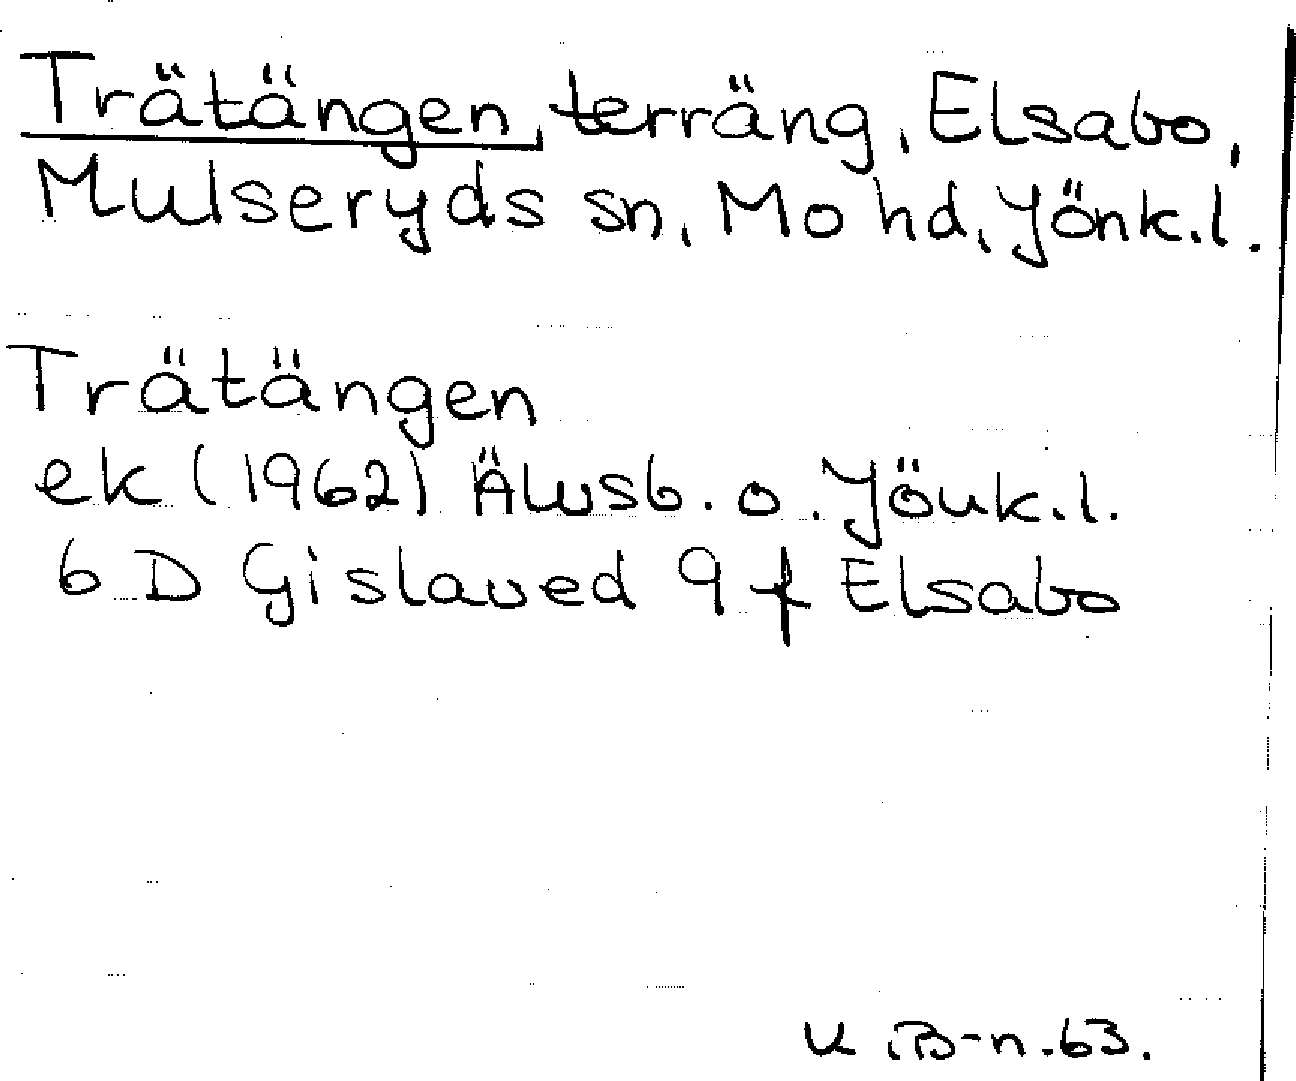 Trätängen, terräng, Elsabo,
Mulseryds sn, Mo hd, Jönk.l.
Trätängen
ek (1962) Älvsb. o. Jönk.l.
6 D Gislaved 9 f Elsabo
K .B-n .63.